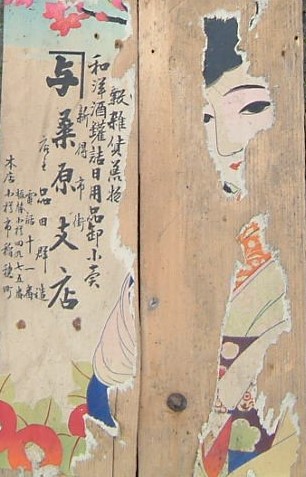 穀雜貨荒物
和洋酒罐詰日用品卸小賣
新得市街
与桑原支店
店主 品田群造
電話十一番
振替小樽四九七五番
本店小樽市稲穂町